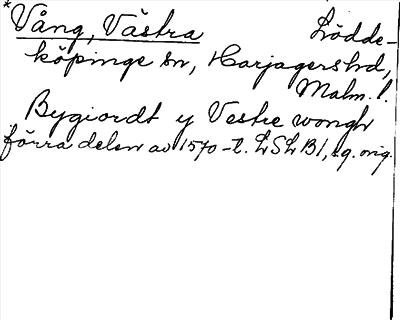 *Vång, Västra Lödde-
köpinge sn, Harjagers hd,
Malm. l.
Bygiordt y Vestre wongh
förra delen av 1570-t. LSLB1, sg. orig.